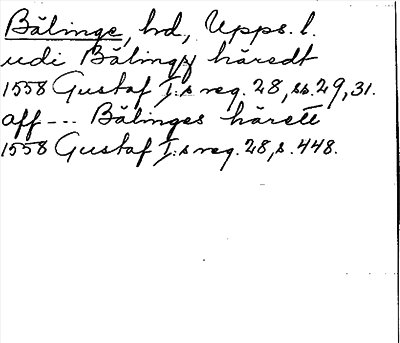 Bälinge, hd, Upps. l.
udi Bälingx häredt
1558 Gustaf I:s reg. 28, ss. 29, 31.
aff --- Bälinges härett
1558 Gustaf I:s reg. 28, s. 448.